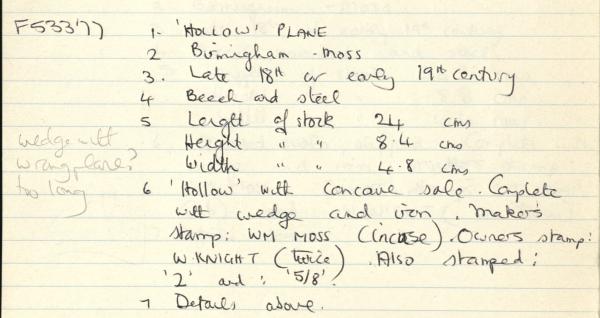 F533'77
1. 'HOLLOW' PLANE
2 Birmingham - Moss
3. Late 18th or early 19th century
4 Beech and steel
5 Length of stock 24 cms
Height " " 8.4 cms
Width " " 4.8 cms
wedge with
wrong plane?
too long
6 'Hollow' with concave sole. Complete
with wedge and iron. Makers
stamp: WM MOSS (incuse). Owners stamp:
W. KNIGHT (twice). Also stamped:
'2' and: '5/8'.
7 Details above.